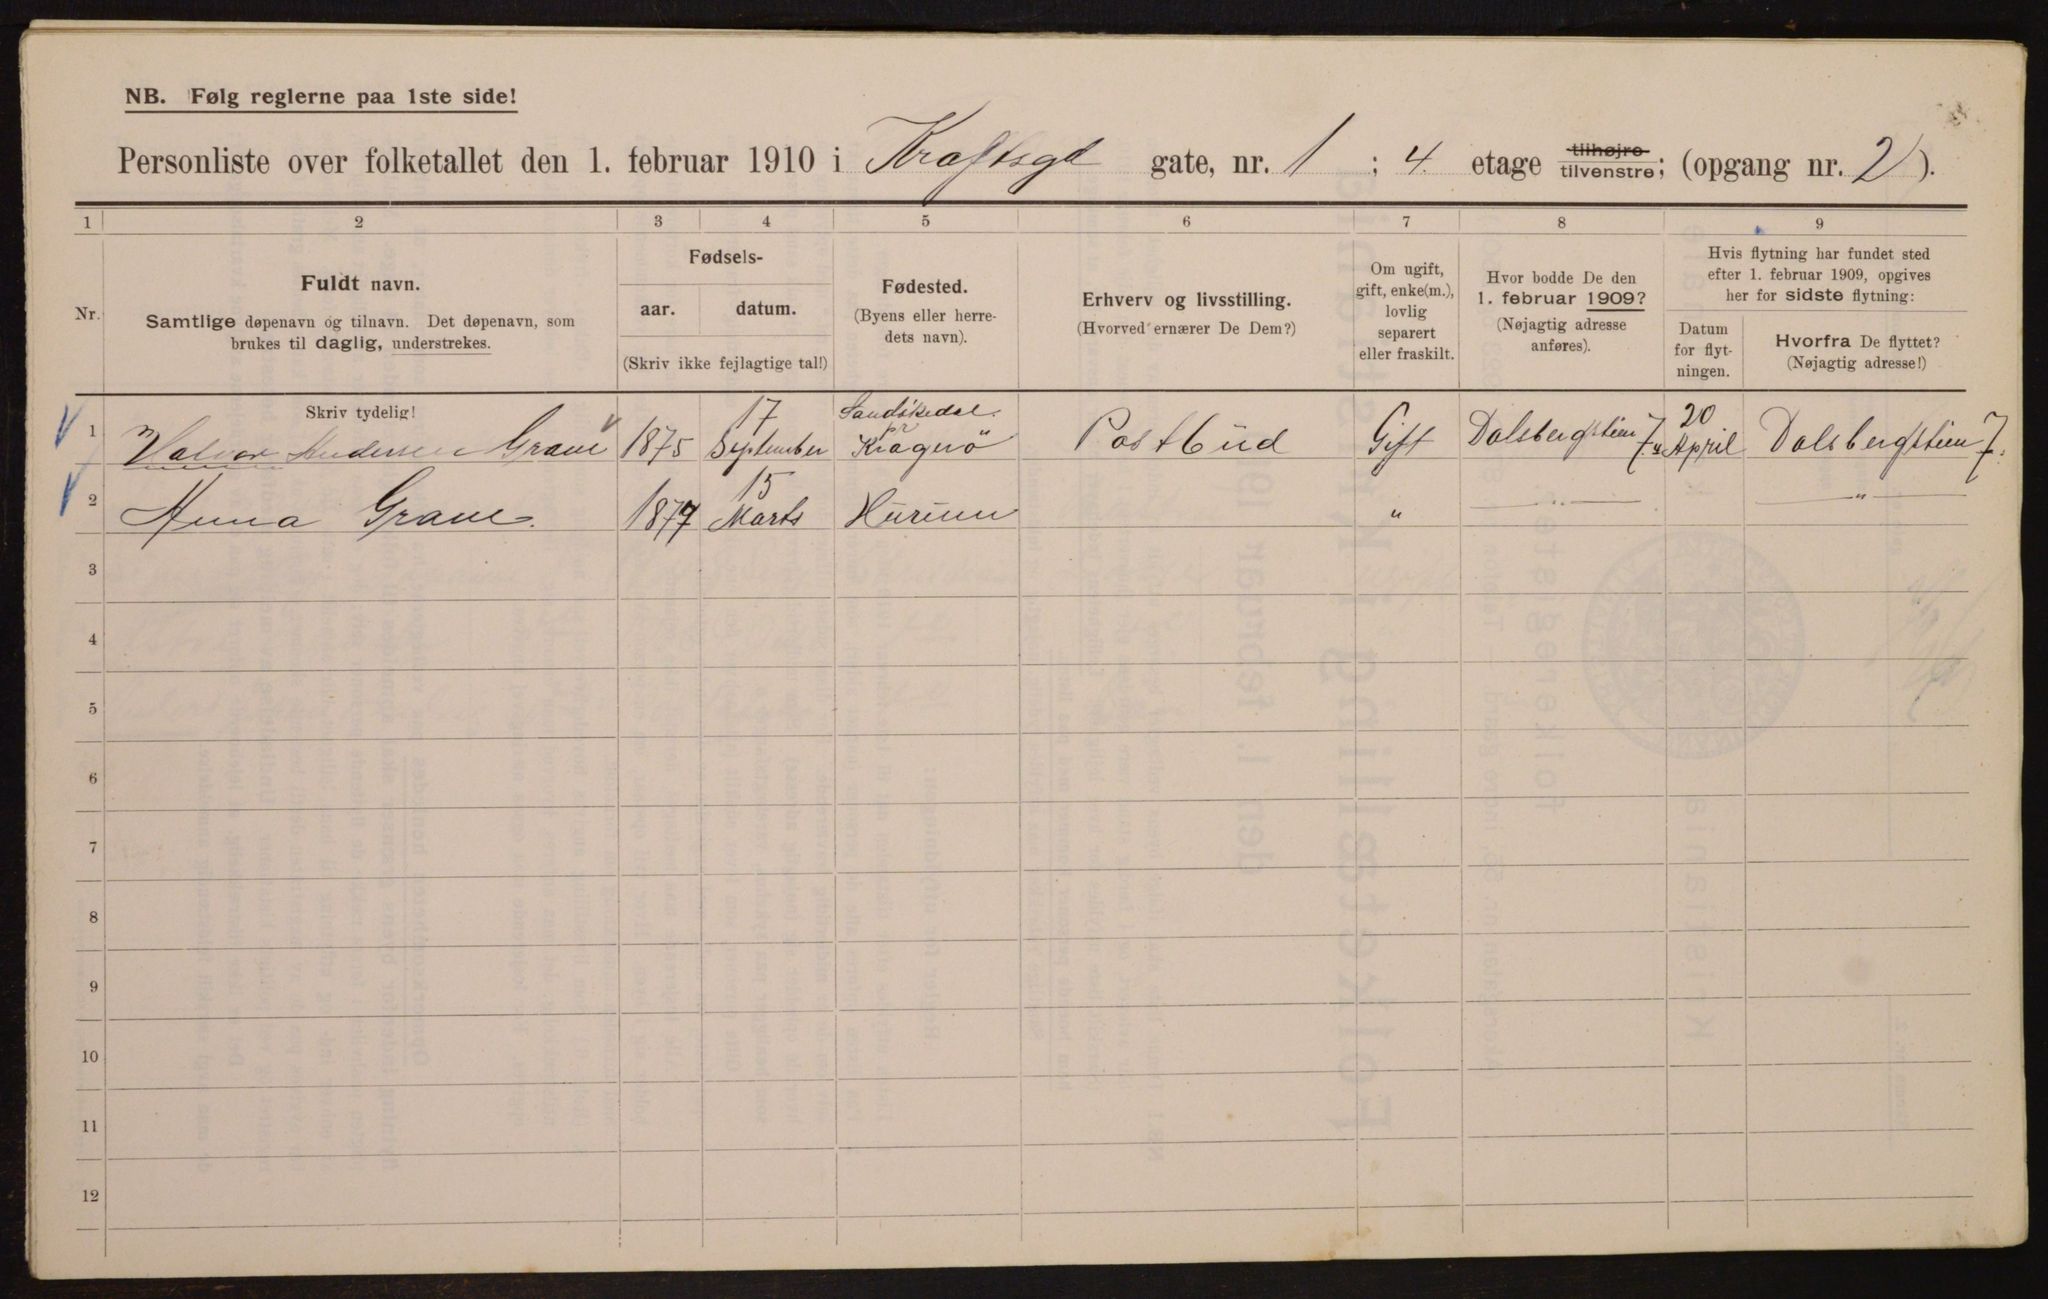 NB. Følg reglerne paa 1ste side!
Personliste over folketallet den 1. februar 1910 i Kraftsgt gate, nr. 1 ; 4. etage tilhøjre tilvenstre; (opgang nr. 2 ).
1 2 3 4 5 6 7 8 9
Nr.
Fuldt navn.
Samtlige døpenavn og tilnavn. Det døpenavn, som
brukes til daglig, understrekes.
Skriv tydelig!
Fødsels-
aar. datum.
(Skriv ikke fejlagtige tal!)
Fødested.
(Byens eller herre-
dets navn).
Erhverv og livsstilling.
(Hvorved ernærer De Dem?)
Om ugift,
gift, enke(m.),
lovlig
separert
eller fraskilt.
Hvor bodde De den
1. februar 1909?
(Nøjagtig adresse
anføres).
Hvis flytning har fundet sted
efter 1. februar 1909, opgives
her for sidste flytning:
Datum
for flyt-
ningen.
Hvorfra De flyttet?
(Nøjagtig adresse!)
1 Halvor Andersen Grave 1875 17 September Sandskedel pr Kragerö Postbud Gift Dalsbergstien 7 20 April Dalsbergstien 7.
2 Anna Grave. 1877 15 Marts Hurum " — " — — " —
3
4
5
6
7
8
9
10
11
12